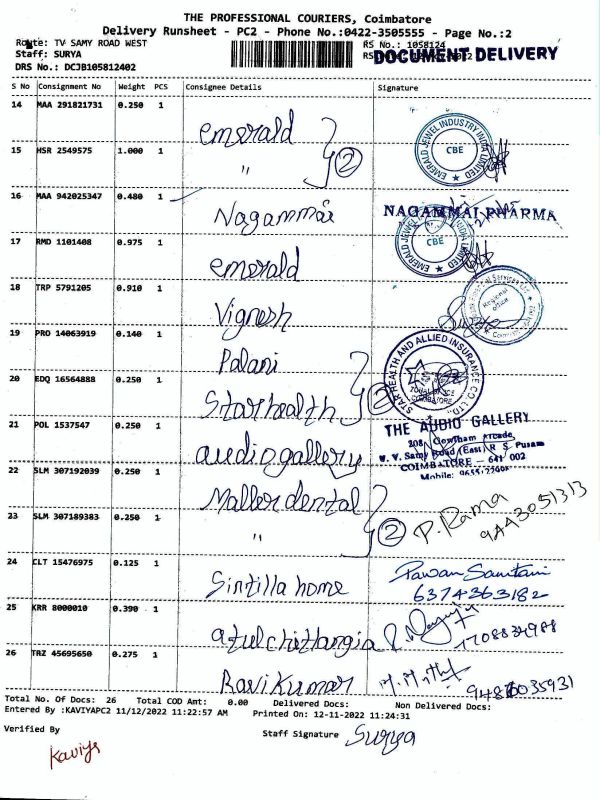 THE PROFESSIONAL COURIERS, Coimbatore
Delivery Runsheet - PC2 - Phone No.:0422-3505555 - Page No.:2
Route: TV SAMY ROAD WEST
RS No.: 1058124
DOCUMENT DELIVERY
Staff: SURYA
DRS No.: DCJB105812402
S No Consignment No Weight PCS Consignee Details Signature
14 MAA 291821731 0.250 1 emerald
EMERALD JEWEL INDUSTRY INDIA LIMITED
CBE
15 HSR 2549575 1.000 1 " 2
16 MAA 942025347 0.480 1 Nagammai
NAGAMMAI PHARMA
17 RMD 1101408 0.975 1 emerald
CBE
18 TRP 5791205 0.910 1 Vignesh
Regional office
19 PRO 14063919 0.140 1 Palani
20 EDQ 16564888 0.250 1 Star health 2
STAR HEALTH AND ALLIED INSURANCE CO. LTD.,
COIMBATORE
21 POL 1537547 0.250 1 audio gallery
THE AUDIO GALLERY
208, Gowtham Arcade,
V. V. Samy Road (East) R S Puram
COIMBATORE - 641 002
22 SLM 307192039 0.250 1 Maller dental
23 SLM 307189383 0.250 1 " 2
P. Rama
9443051313
24 CLT 15476975 0.125 1 Sintilla home
Pawan Samtani
6374363182
25 KRR 8000010 0.390 1 atulchittangia
7708834988
26 TRZ 45695650 0.275 1 Ravi Kumar
Total No. Of Docs: 26 Total COD Amt: 0.00 Delivered Docs: Non Delivered Docs:
Entered By :KAVIYAPC2 11/12/2022 11:22:57 AM Printed On: 12-11-2022 11:24:31
Verified By Staff Signature Surya
Kaviya